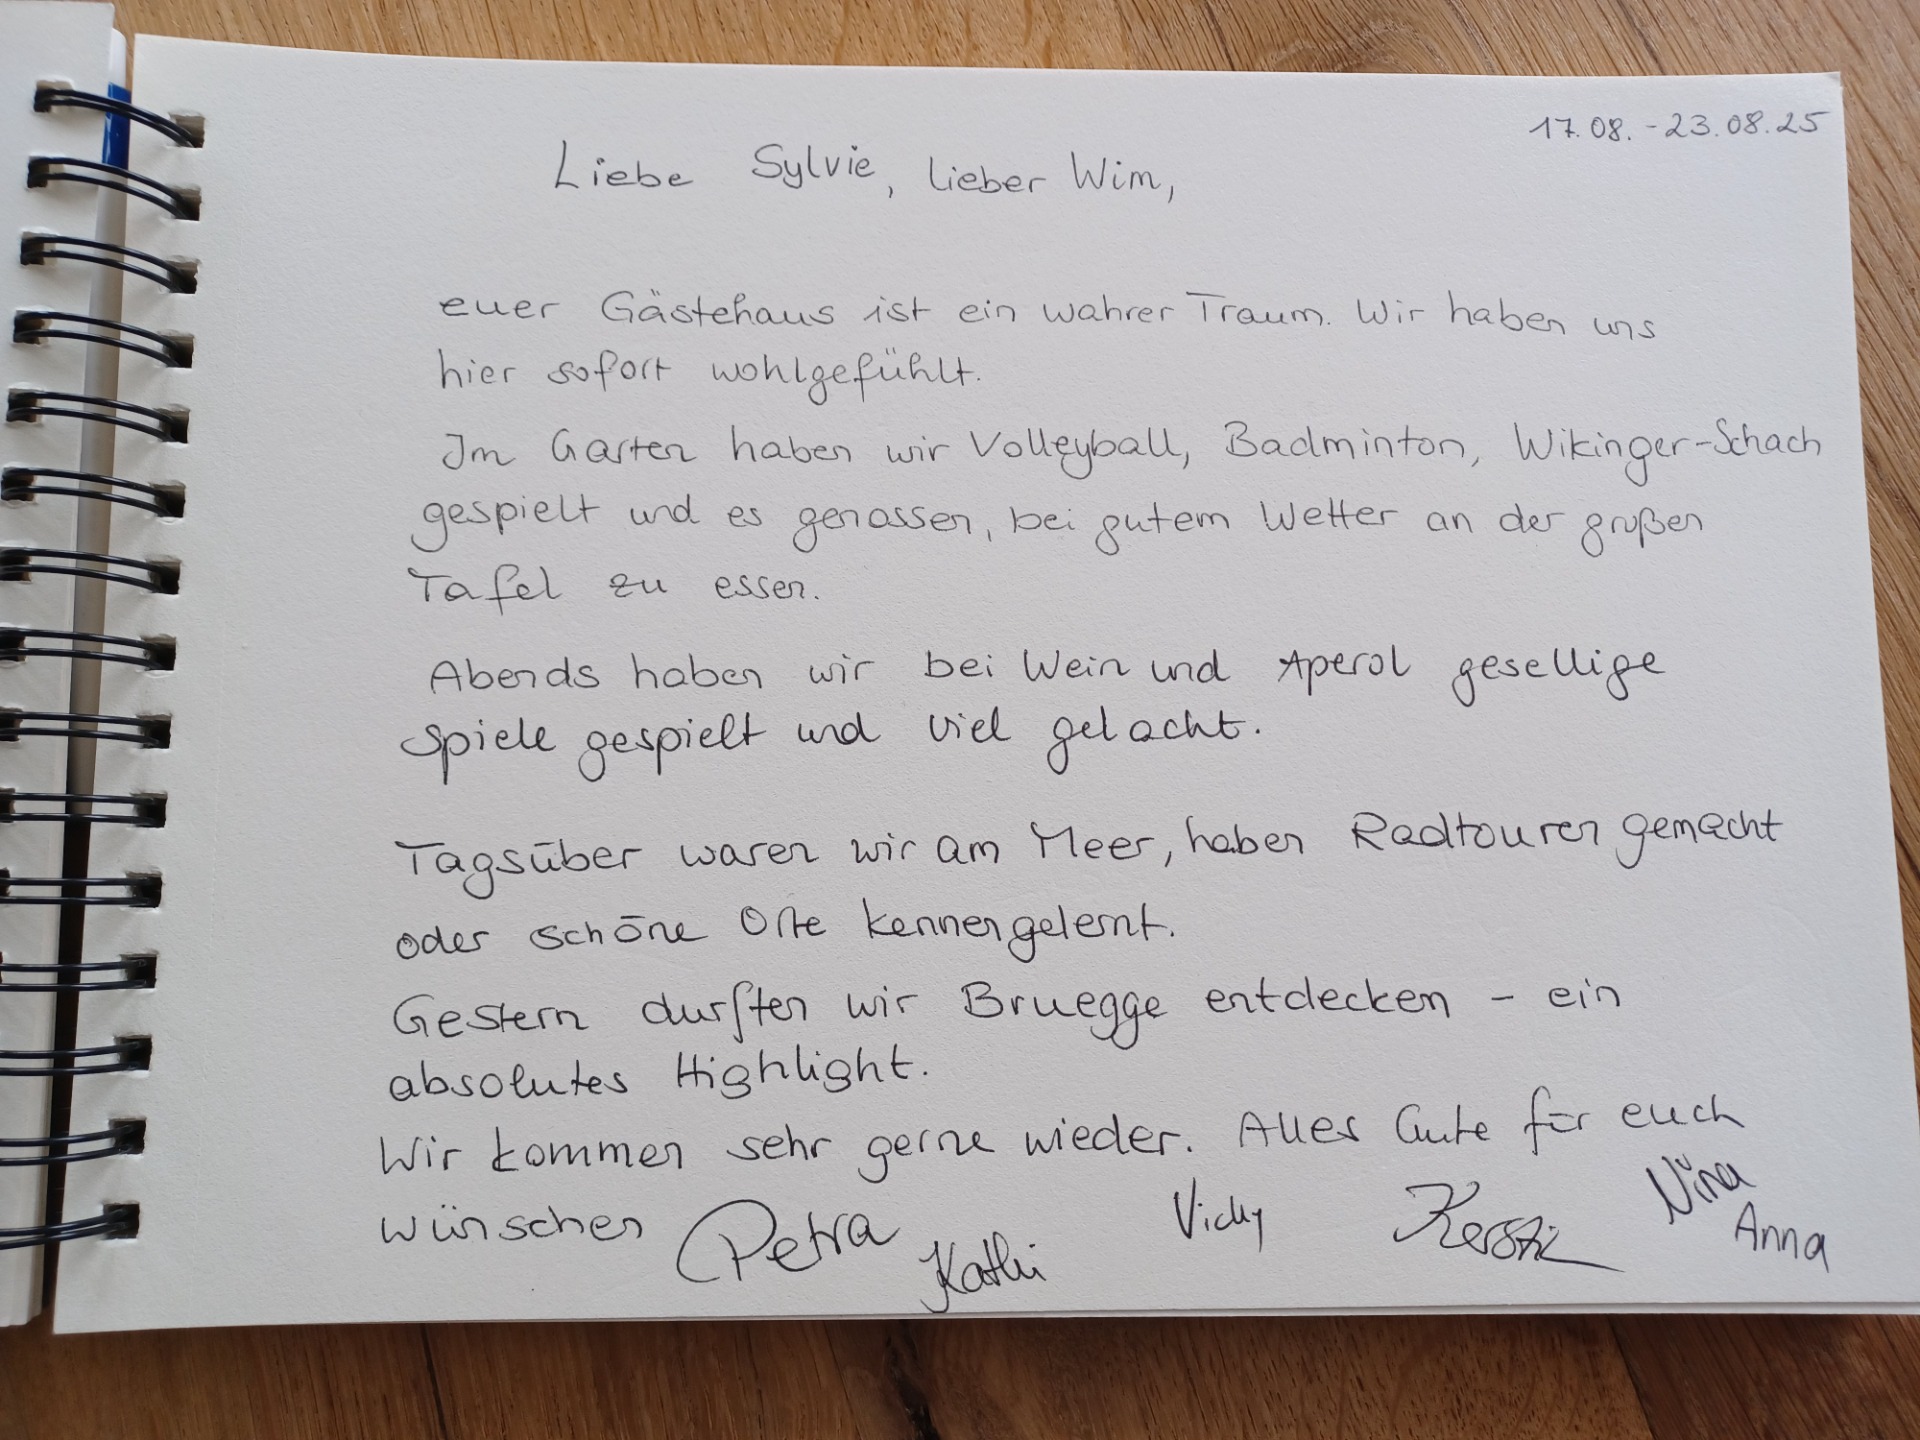 17.08. - 23.08.25
Liebe Sylvie, lieber Wim,
euer Gästehaus ist ein wahrer Traum. Wir haben uns
hier sofort wohlgefühlt.
Im Garten haben wir Volleyball, Badminton, Wikinger-Schach
gespielt und es genossen, bei gutem Wetter an der großen
Tafel zu essen.
Abends haben wir bei Wein und Aperol gesellige
Spiele gespielt und viel gelacht.
Tagsüber waren wir am Meer, haben Radtouren gemacht
oder schöne Orte kennengelernt.
Gestern durften wir Bruegge entdecken - ein
absolutes Highlight.
Wir kommen sehr gerne wieder. Alles Gute für euch
wünschen Petra Kathi Vicky Nina
Anna